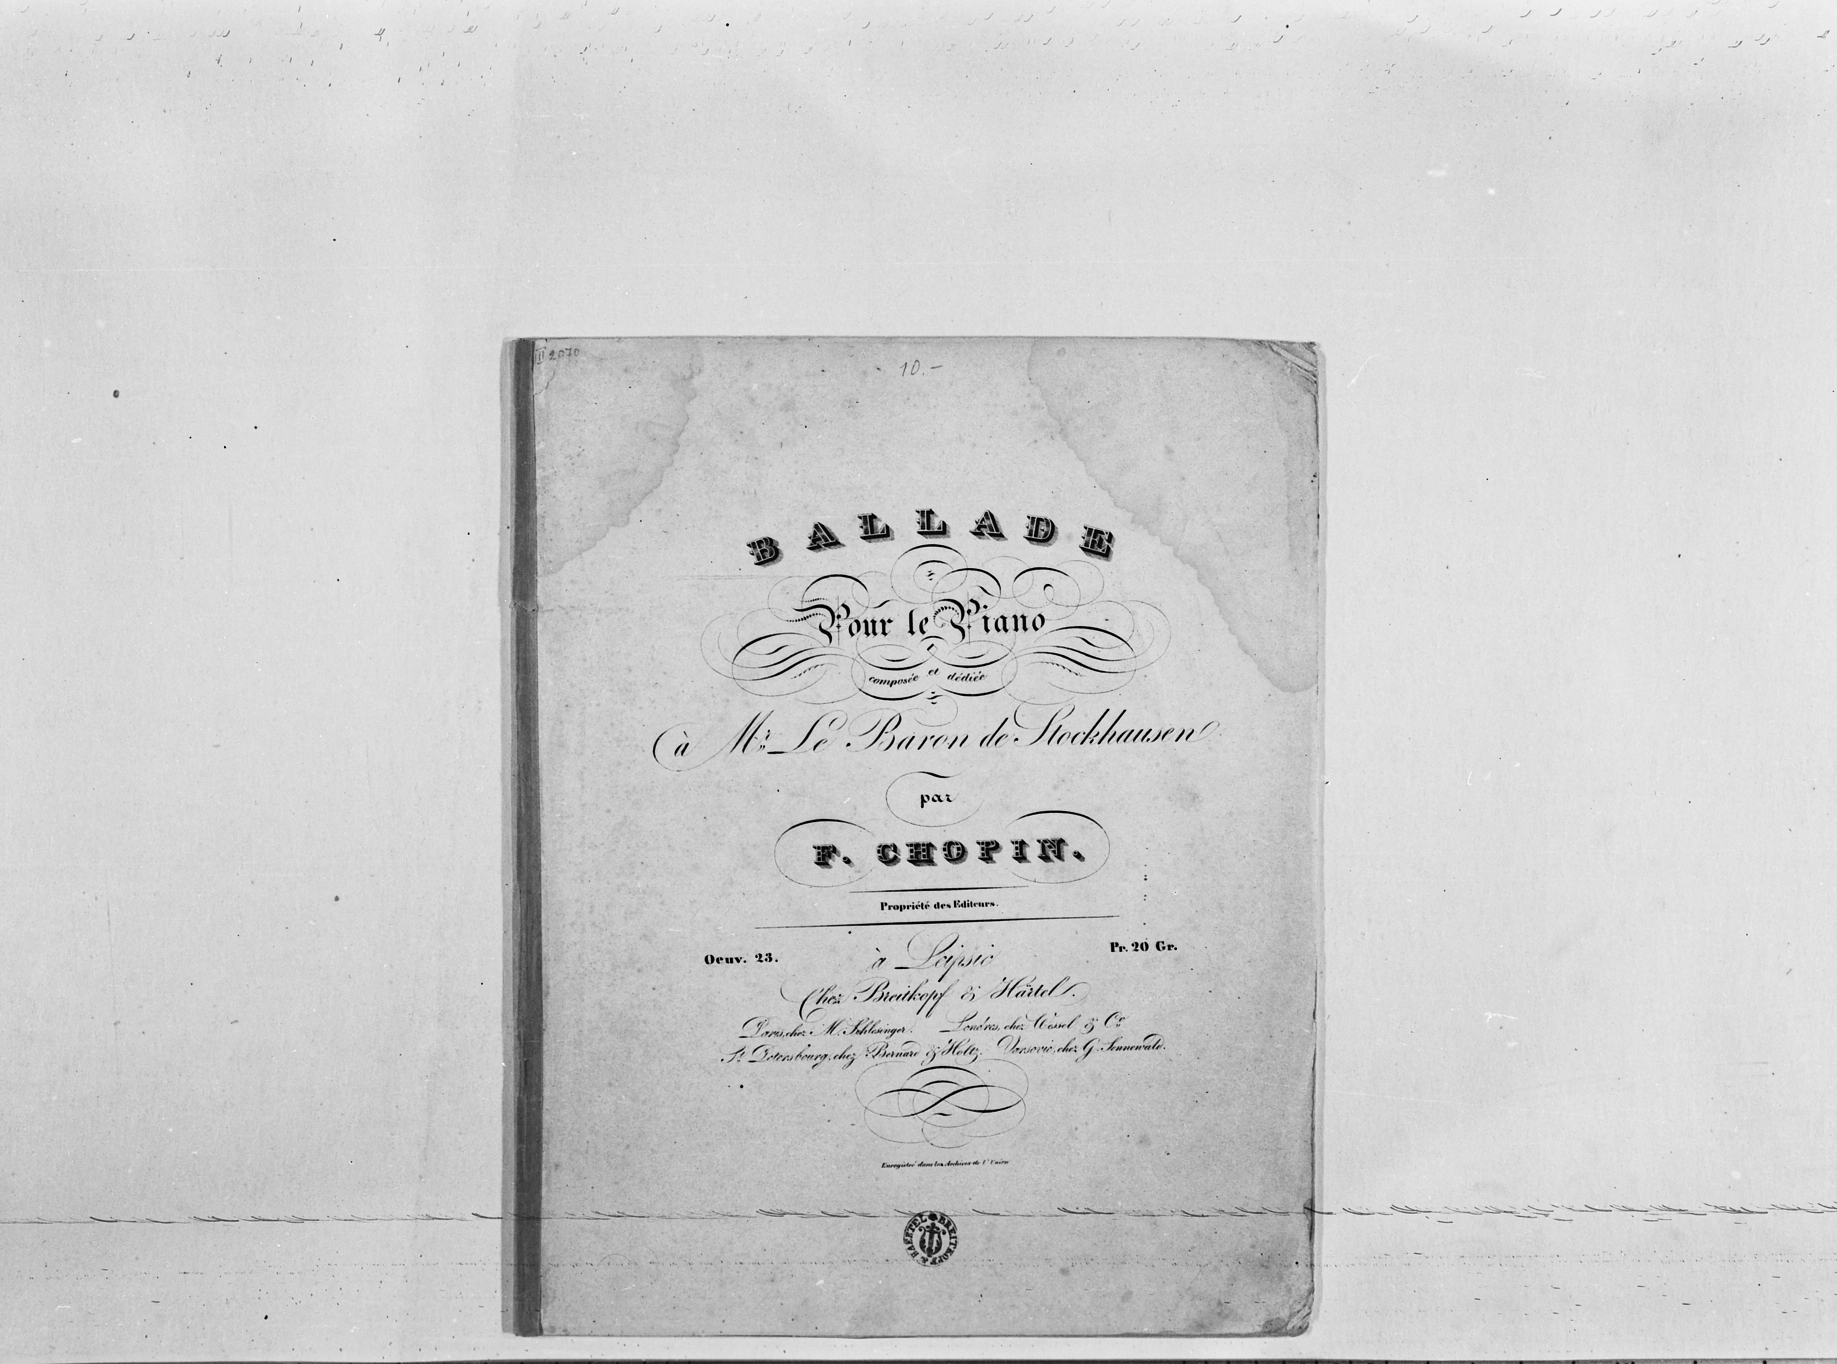 III 2070
10.-
BALLADE
Pour le Piano
composée et dédiée
à Mr. Le Baron de Stockhausen
par
F. CHOPIN.
Propriété des Editeurs.
Oeuv. 23. à Leipsic Pr. 20 Gr.
Chez Breitkopf & Härtel.
Paris, chez M. Schlesinger. Londres, chez Wessel & Co.
St. Petersbourg, chez Bernard & Holtz. Varsovie, chez G. Sennewald.
Enregistré dans les Archives de l'Union
BREITKOPF & HAERTEL